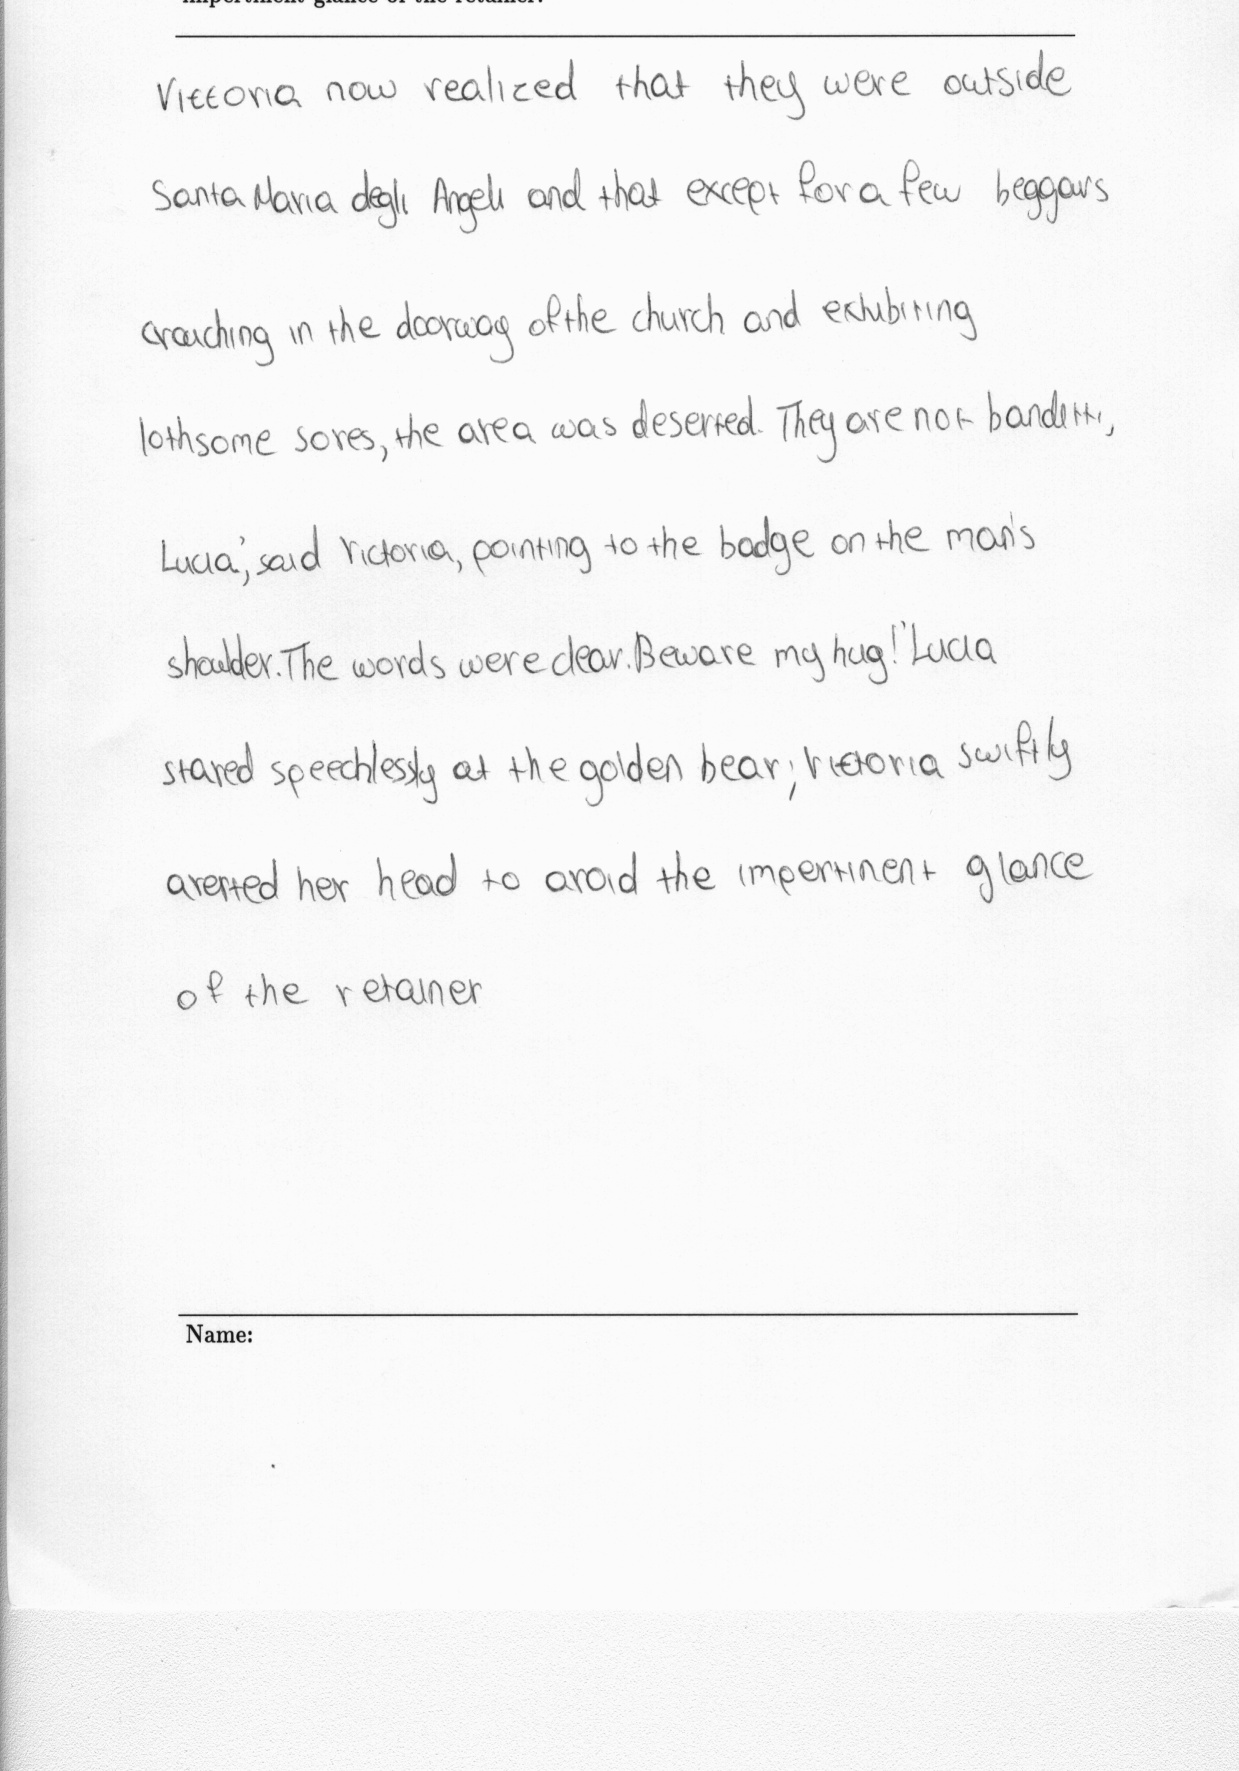 Vittoria now realized that they were outside
Santa Maria degli Angeli and that except for a few beggars
crouching in the doorway of the church and exhibiting
lothsome sores, the area was deserted. They are not banditti,
Lucia', said Victoria, pointing to the badge on the man's
shoulder. The words were clear. Beware my hug!' Lucia
stared speechlessly at the golden bear; Victoria swiftly
averted her head to avoid the impertinent glance
of the retainer
Name: